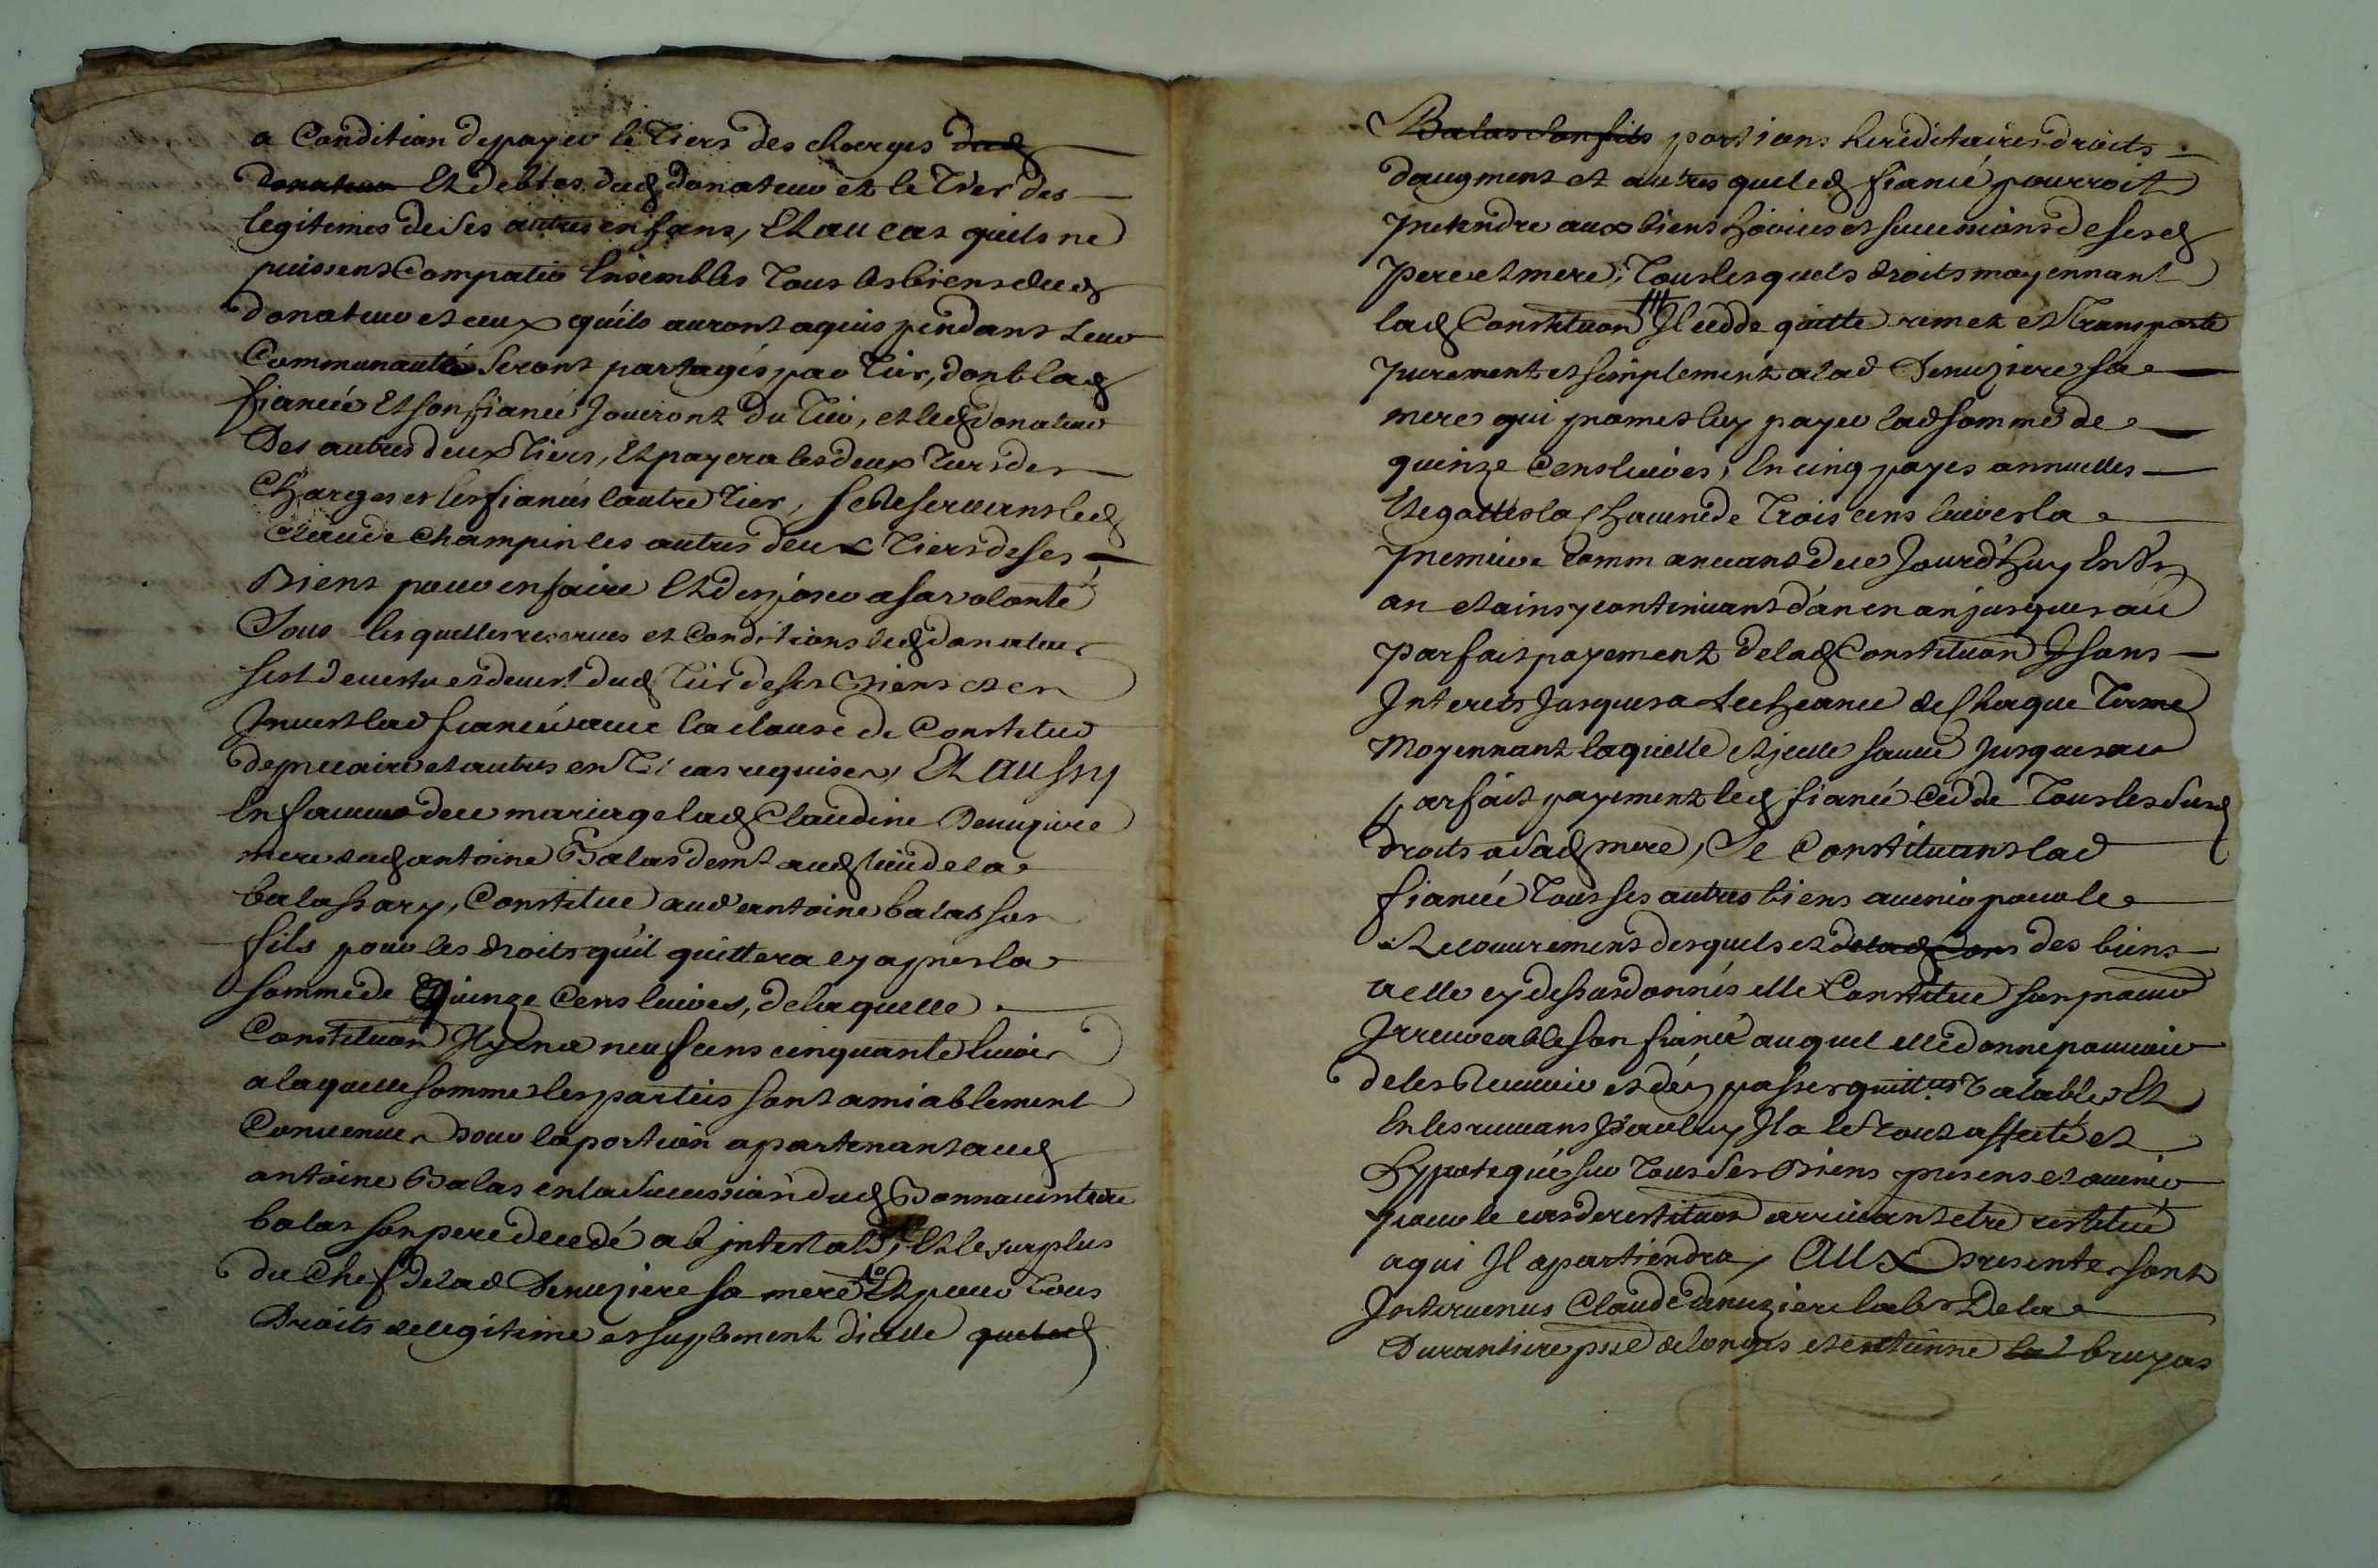 a Condition depayer le Tiers des charges dud
donateur Et debtes dud donateur et le Tier des
legitimes de ses autres enfans, Et au cas quils ne
puissent Compatir Ensembles Tous les biens dud
donateur et ceux quils auront aquis pendant Leur
Communauté Seront partagés par Tier, dont lad
fiancée Et son fiancé Jouiront du Tier, et led donateur
Des autres deux Tiers, Et payera les deux Tiers des
Charges et les fiancés l'autre Tier, se Reservant led
Claude Champin les autres deux Tiers de ses
Biens pour en faire Et disposer a sa volonté
Sous les quelles reserves et Conditions led donateur
sest devestu et devest dud Tier de ses Biens et en
Jnvest lad fiancée avec la clause de Constitut
de precaire et autres en Tel cas requises, Et aussy
En faveur de ce mariage lad Claudine Denuziere
mere dud antoine Balas demt aud lieu de la
balassary, Constitue aud antoine balas son
fils pour les droits qu'il quittera cy apres la
somme de Quinze Cens livres, de laquelle
Constituon Jl y en a neuf cens cinquante livres
a laquelle somme les parties sont amiablement
Convenues pour la portion apartenant aud
antoine Balas en la Succession dud Bonnaventure
balas son pere decedé ab jntestat, Et le surplus
du Chef de lad Denuziere sa mere Et pour Tous
Droits de legitime et suplement dicelle que led
Balas son fils portions hereditaires droits
daugment et autres que led fiancé pourroit
pretendre aux biens hoiries et successions de sesd
Pere et mere, Tous lesquels droits moyennant
lad Constituon Jl cedde quitte remet et Transporte
purement et simplement a lad Denuziere sa
mere qui promet luy payer lad somme de
quinze Cens livres, En cinq payes annuelles
Et egalles la Chacune de Trois cens livres la
premiere Commancant de ce Jourd'huy En Un
an et ainsy continuant d'an en an jusques au
parfait payement de lad Constituon Et sans
Interets Jusques a Lecheance de Chaque Terme
Moyennant laquelle et jcelle sauve Jusques au
parfait payement led fiancé Cedde Tous les Susd
droits a Sad mere, Se Constituant lad
fiancée Tous ses autres biens avenir pour le
Recouvrement desquels et de lad Cons des biens
a elle cy dessus donnés elle Constitue son procur
Jrrevocable son fiancé auquel elle donne pouvoir
de les Recevoir et d'en passer quittces Valables Et
En les recevant Par luy Jl a le Tout affecté et
hypotequé sur Tous Ses Biens presens et avenir
pour le cas de restituon arrivant etre restitué
a qui Jl apartiendra, Aux Presentes sont
Jntervenus Claude denuziere labr De la
Durantiere psse de longes et entienne lad bruyas